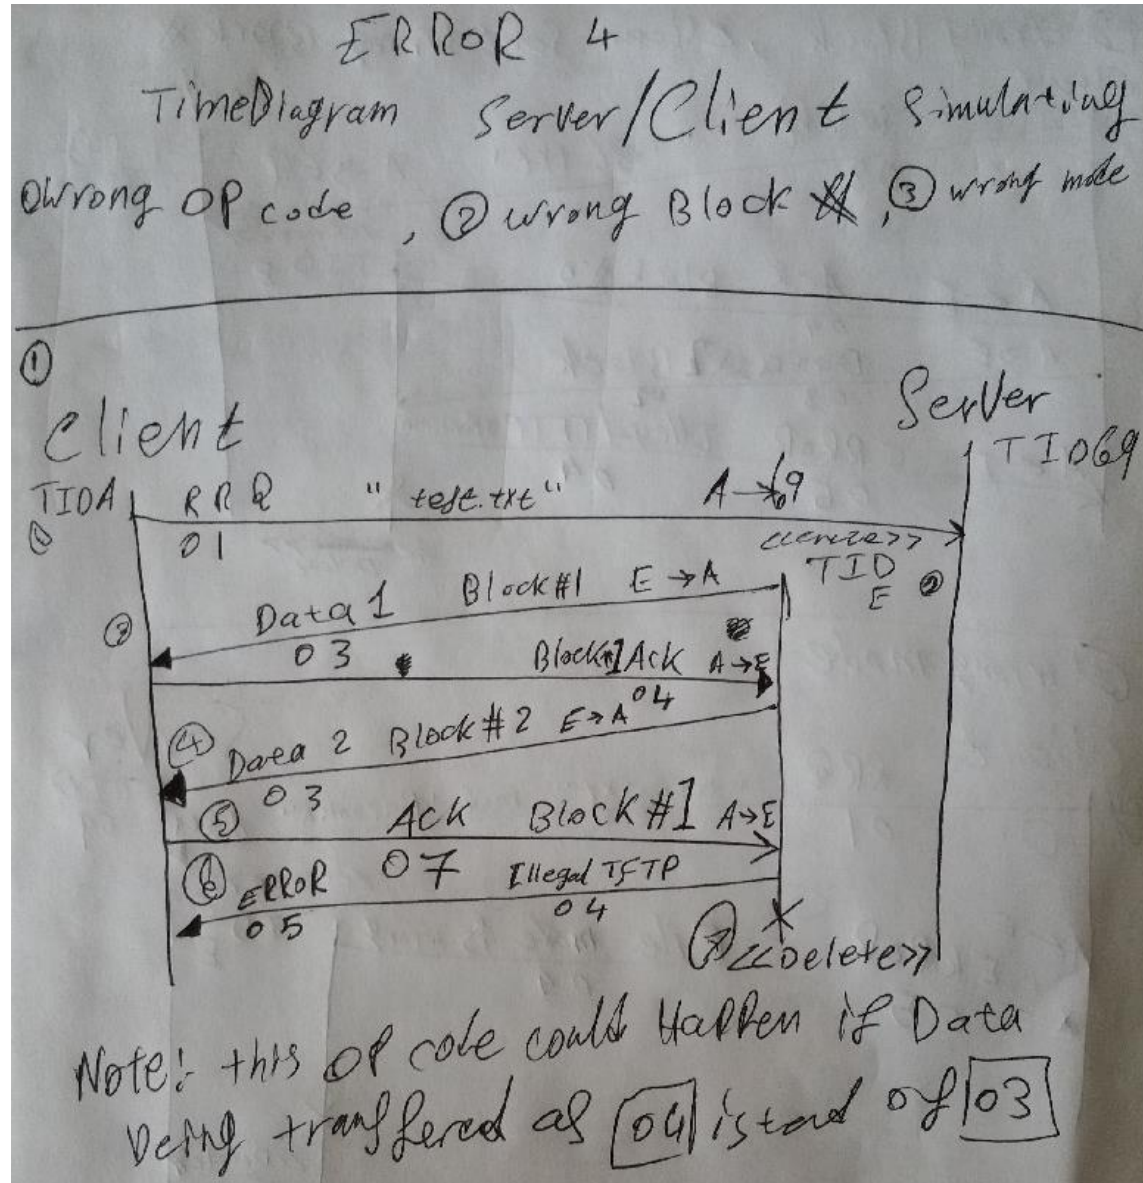 ERROR 4
TimeDiagram Server/Client Simulating
① wrong OP code, ② wrong Block #, ③ wrong mode
①
Client
Server
TID69
TIDA RRQ "test.txt" A→69
① 01 <<create>>
TID
E ②
Data 1 Block#1 E→A
③ 03 Block#1 Ack A→E
04
④ Data 2 Block #2 E→A
03
⑤ Ack Block #1 A→E
07
⑥ ERROR Illegal TFTP
05 04
⑦ <<Delete>>
Note: this OP code could Happen if Data
being transfered as 04 istead of 03